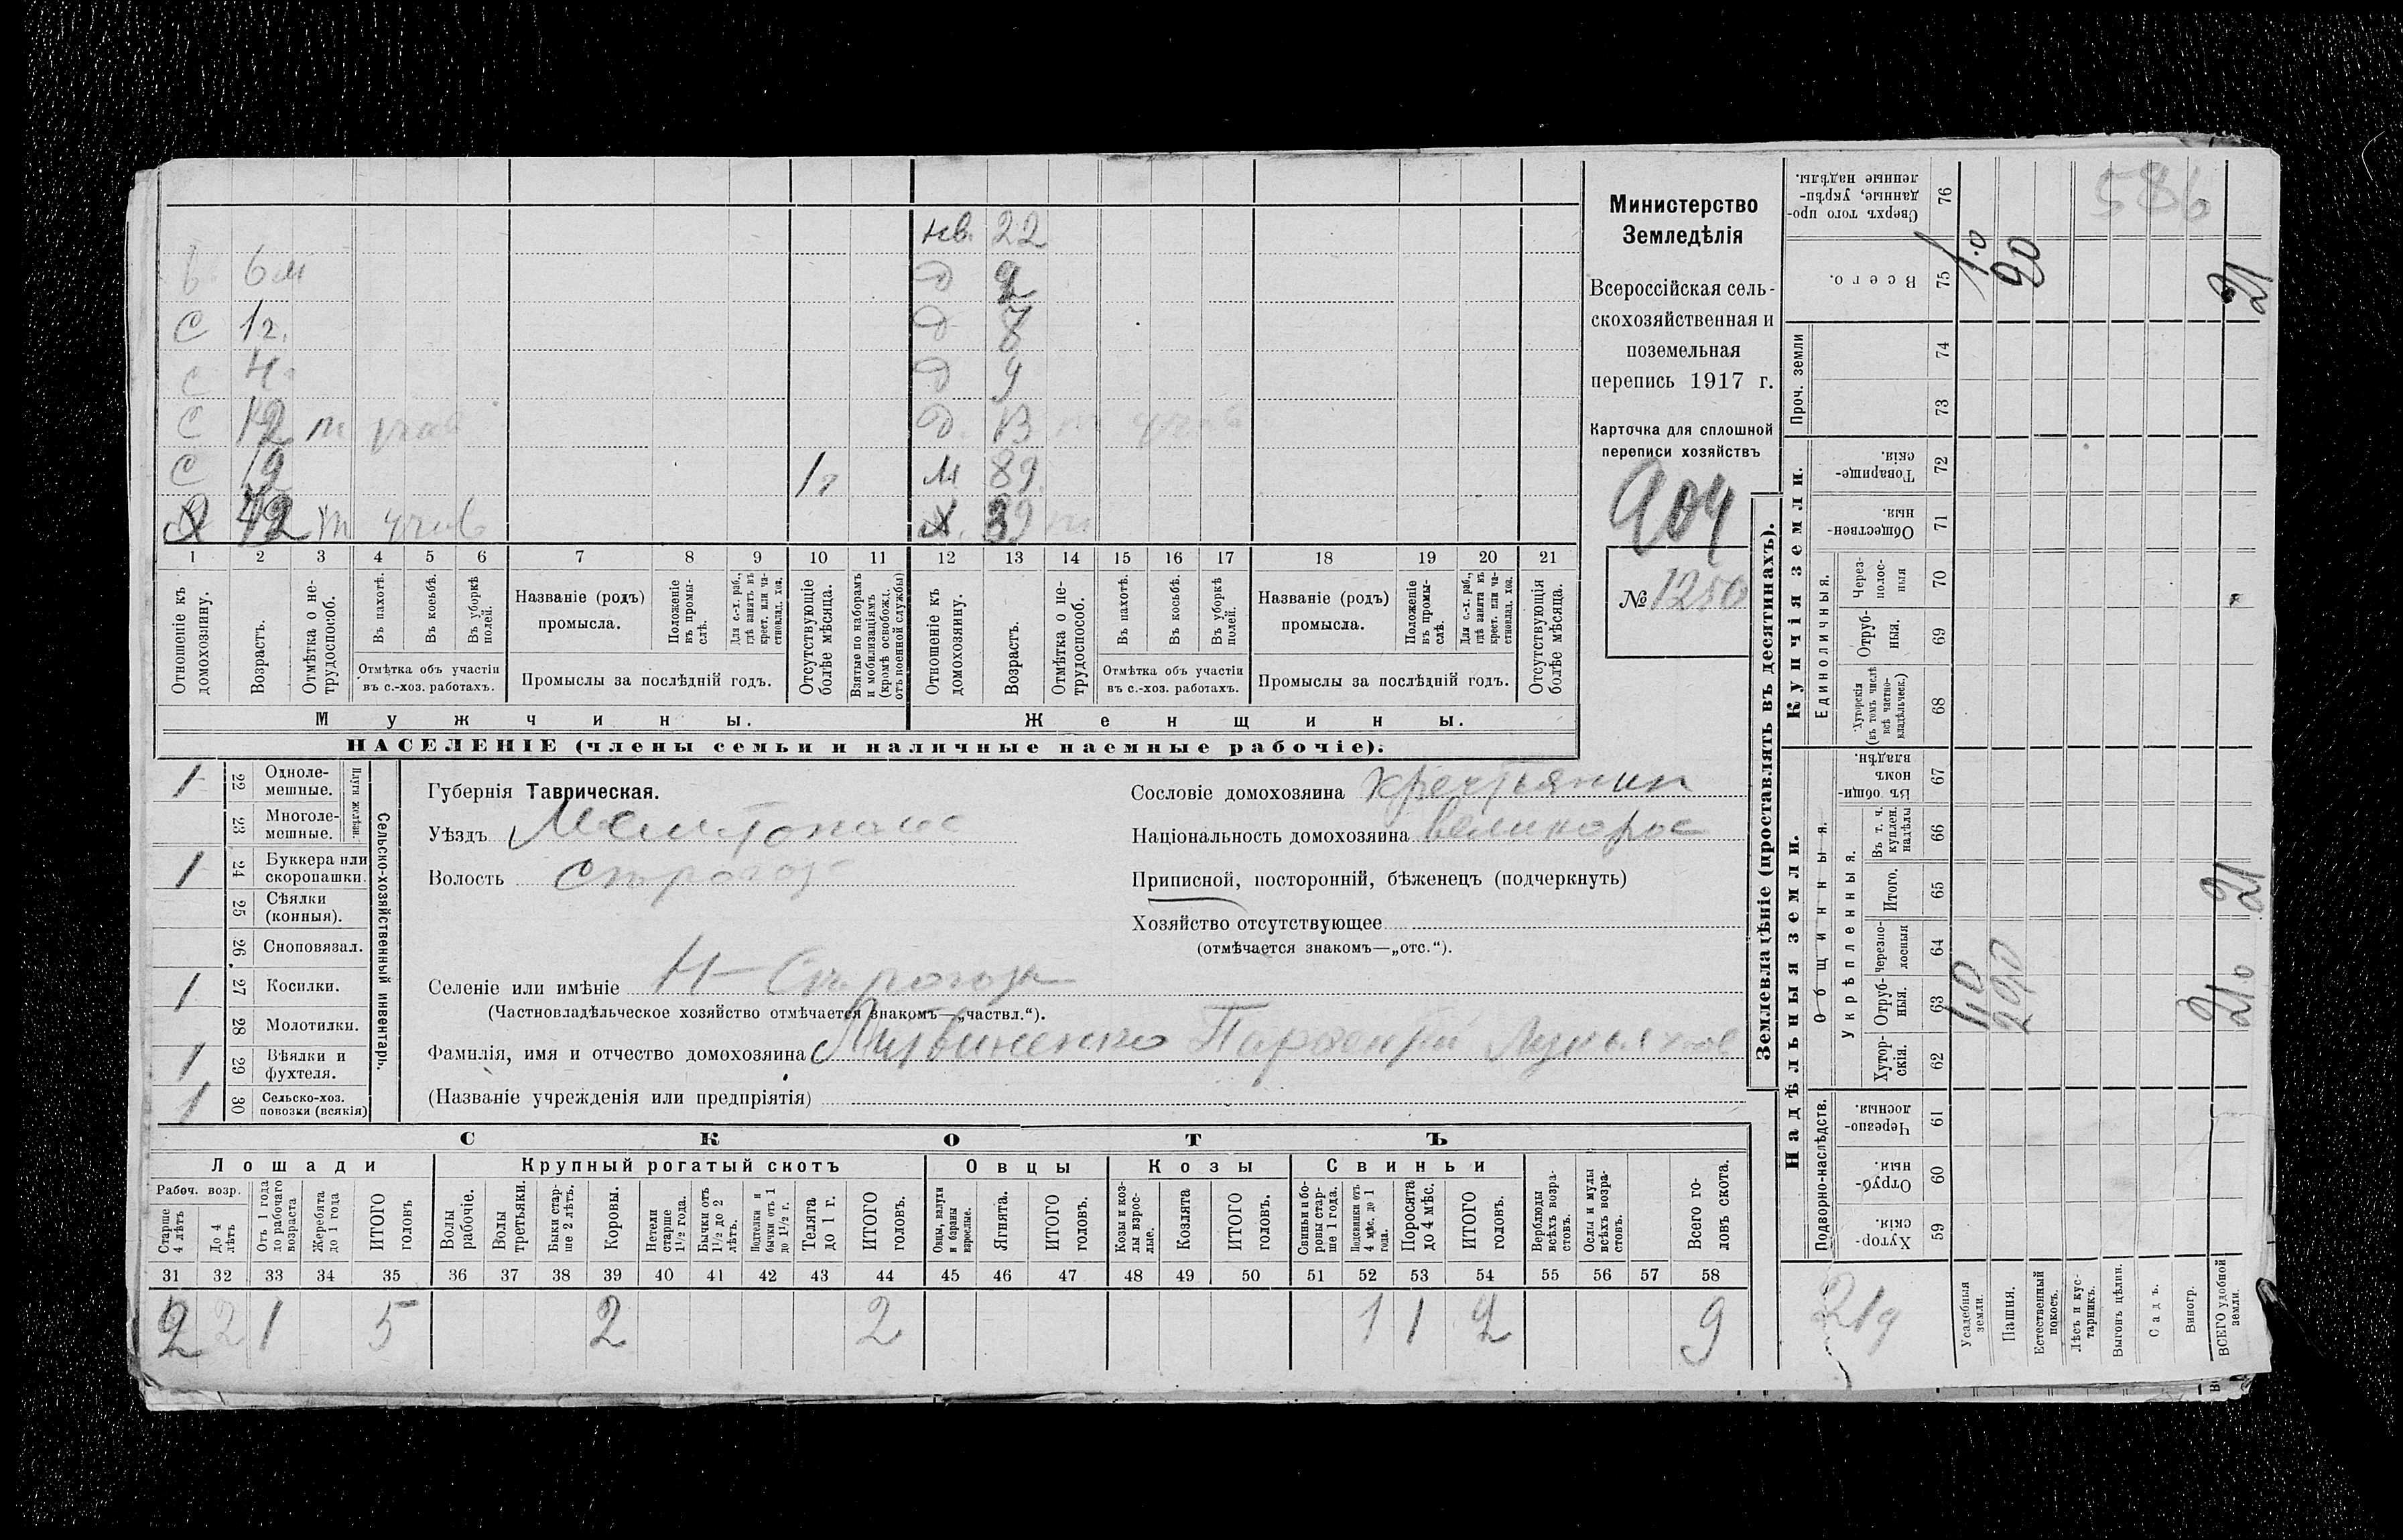 Министерство
Земледѣлія
Всероссійская сель-
скохозяйственная и
поземельная
перепись 1917 г.
Карточка для сплошной
переписи хозяйствъ
904
№ 1250
586
нв. 22
6 м
С 1 г.
С 12
С 19 1 г
м 89
42
1 2 3 4 5 6 7 8 9 10 11 12 13 14 15 16 17 18 19 20 21
Отношеніе къ домохозяину.
Возрастъ.
Отмѣтка о не-трудоспособ.
Въ пахотѣ.
Въ косьбѣ.
Въ уборкѣ полей.
Отмѣтка объ участіи
въ с.-хоз. работахъ.
Названіе (родъ)
промысла.
Положеніе въ промы-слѣ.
Для с.-х. раб., гдѣ занятъ въ крест. или ча-стновлад. хоз.
Промыслы за послѣдній годъ.
Отсутствующіе болѣе мѣсяца.
Взятые по наборамъ и мобилизаціямъ (кромѣ освобожд. отъ военной службы)
Отношеніе къ домохозяину.
Возрастъ.
Отмѣтка о не-трудоспособ.
Въ пахотѣ.
Въ косьбѣ.
Въ уборкѣ полей.
Отмѣтка объ участіи
въ с.-хоз. работахъ.
Названіе (родъ)
промысла.
Положеніе въ промы-слѣ.
Для с.-х. раб., гдѣ занята въ крест. или ча-стновлад. хоз.
Промыслы за послѣдній годъ.
Отсутствующія болѣе мѣсяца.
Мужчины. Женщины.
НАСЕЛЕНІЕ (члены семьи и наличные наемные рабочіе).
Сельско-хозяйственный инвентарь.
Плуги желѣзн.
1 22 Одноле-мешные.
23 Многоле-мешные.
1 24 Буккера или скоропашки.
25 Сѣялки (конныя).
26 Сноповязал.
1 27 Косилки.
28 Молотилки.
1 29 Вѣялки и фухтеля.
1 30 Сельско-хоз. повозки (всякія)
Губернія Таврическая.
Уѣздъ
Волость
Селеніе или имѣніе
(Частновладѣльческое хозяйство отмѣчается знакомъ—„частвл.“).
Фамилія, имя и отчество домохозяина Литвиненко Парфентій
(Названіе учрежденія или предпріятія)
Сословіе домохозяина крестьянин
Національность домохозяина великорос
Приписной, посторонній, бѣженецъ (подчеркнуть)
Хозяйство отсутствующее
(отмѣчается знакомъ—„отс.“).
СКОТЪ
Лошади Крупный рогатый скотъ Овцы Козы Свиньи
Рабоч. возр.
Старше 4 лѣтъ
До 4 лѣтъ
Отъ 1 года до рабочаго возраста
Жеребята до 1 года
ИТОГО головъ
Волы рабочіе.
Волы третьяки.
Быки стар-ше 2 лѣтъ.
Коровы.
Нетели старше 1 1/2 года.
Бычки отъ 1 1/2 до 2 лѣтъ.
Подтелки и бычки отъ 1 до 1 1/2 г.
Телята до 1 г.
ИТОГО головъ.
Овцы, валухи и бараны взрослые.
Ягнята.
ИТОГО головъ.
Козы и коз-лы взрос-лые.
Козлята
ИТОГО головъ.
Свиньи и бо-ровы стар-ше 1 года.
Подсвинки отъ 4 мѣс. до 1 года.
Поросята до 4 мѣс.
ИТОГО головъ.
Верблюды всѣхъ возра-стовъ.
Ослы и мулы всѣхъ возра-стовъ.
Всего го-ловъ скота.
31 32 33 34 35 36 37 38 39 40 41 42 43 44 45 46 47 48 49 50 51 52 53 54 55 56 57 58
2 2 1 5 2 2 1 1 2 9
Землевладѣніе (проставлять въ десятинахъ).
Надѣльныя земли. Купчія земли.
Подворно-наслѣдств.
Общинныя.
Укрѣпленныя.
Единоличныя.
Проч. земли
Хутор-скія. 59
Отруб-ныя. 60
Черезпо-лосныя. 61
Хутор-скія. 62
Отруб-ныя. 63
черезпо-лосныя 64
Итого. 65
Въ т. ч. куплен. надѣлы 66
Въ общи-номъ владѣн. 67
Хуторскія (въ томъ числѣ всѣ частно-владѣльческ.) 68
Отруб-ныя. 69
Через-полос-ныя 70
Обществен-ныя. 71
Товарище-скія. 72
73
74
Всего. 75
Сверхъ того про-данные, укрѣп-ленные надѣлы. 76
Усадебныя земли. 1.0
Пашня. 20
Естественный покосъ.
Лѣсъ и кус-тарникъ.
Выгонъ цѣлин.
Садъ.
Виногр.
ВСЕГО удобной земли. 21.0 21 21